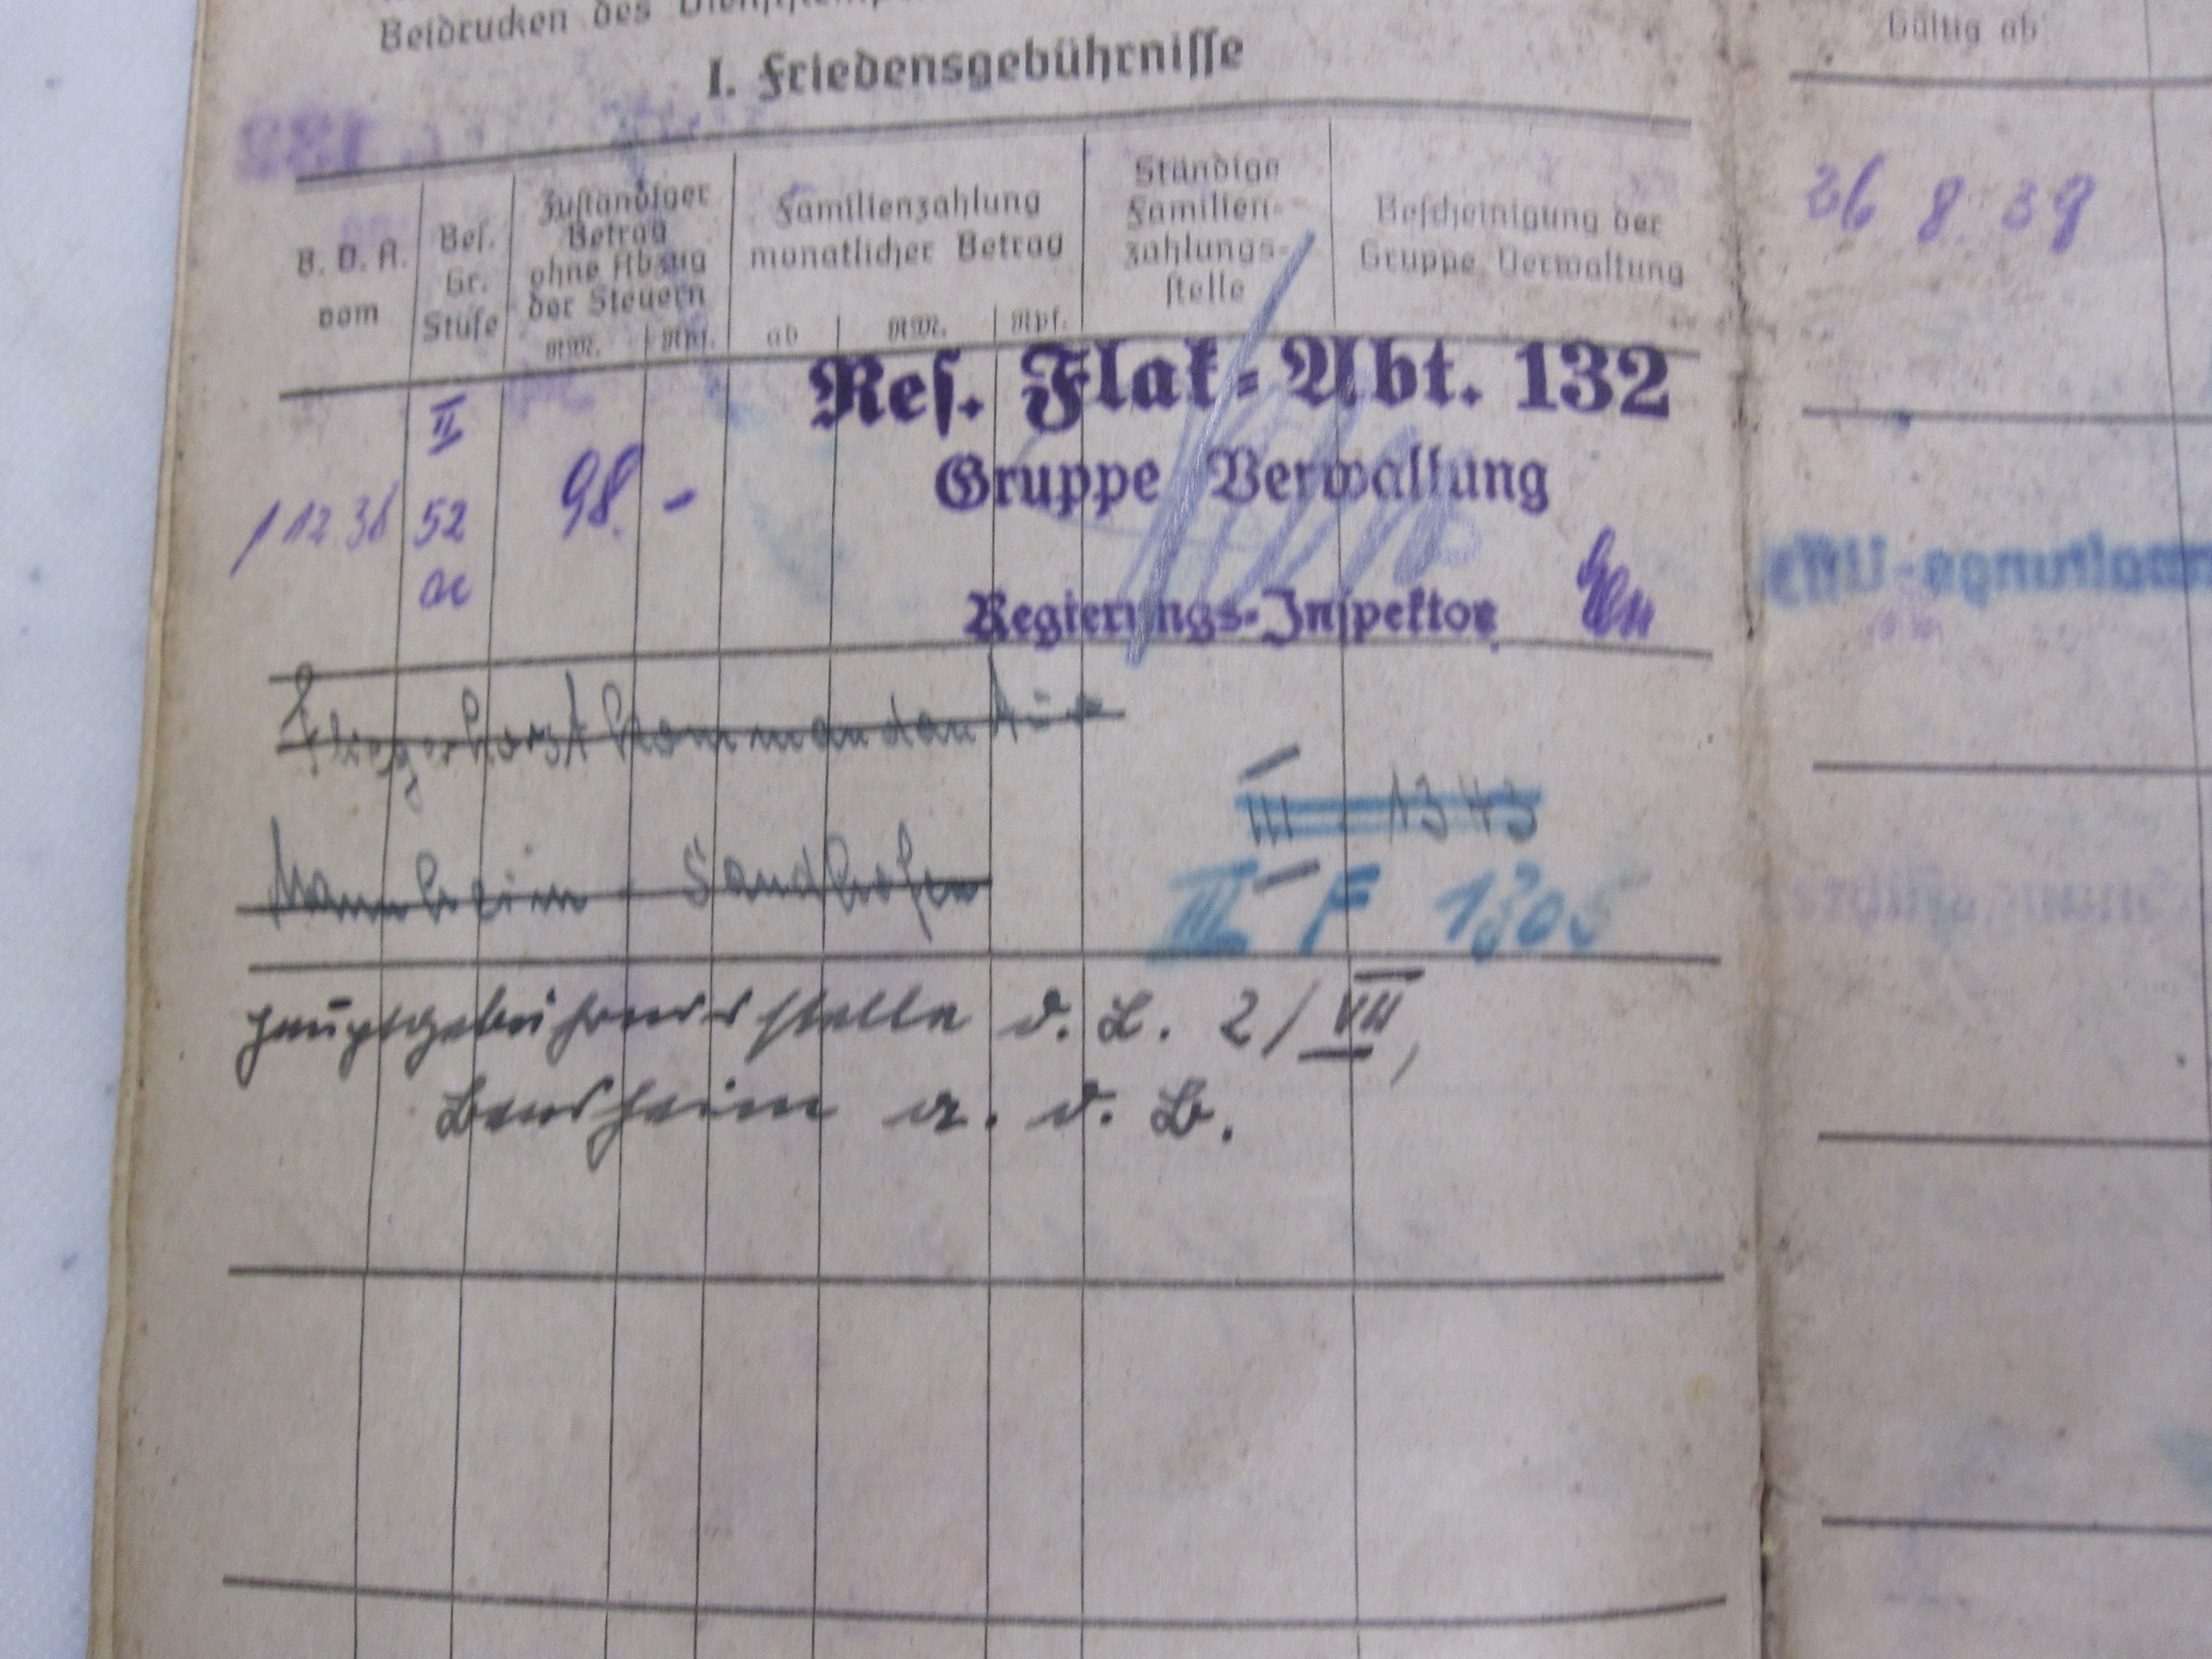 Beidrucken des
I. Friedensgebührnisse
B. D. A. vom
Bes. Gr. Stufe
Zuständiger Betrag ohne Abzug der Steuern
RM. Rpf.
Familienzahlung monatlicher Betrag
ab RM. Rpf.
Ständige Familien- zahlungs- stelle
Bescheinigung der Gruppe Verwaltung
Res. Flak-Abt. 132
Gruppe Verwaltung
Regierungs-Inspektor
1 12 36
II
52
98. -
Fliegerhorst Kommandantur
Mannheim - Sandhofen
III 1343
III F 1305
Hauptgebührnisstelle d. L. 2/VII,
Bensheim a. d. B.
Gültig ab
26 8 39